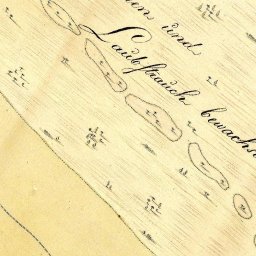 und
Laubstrauch bewachs